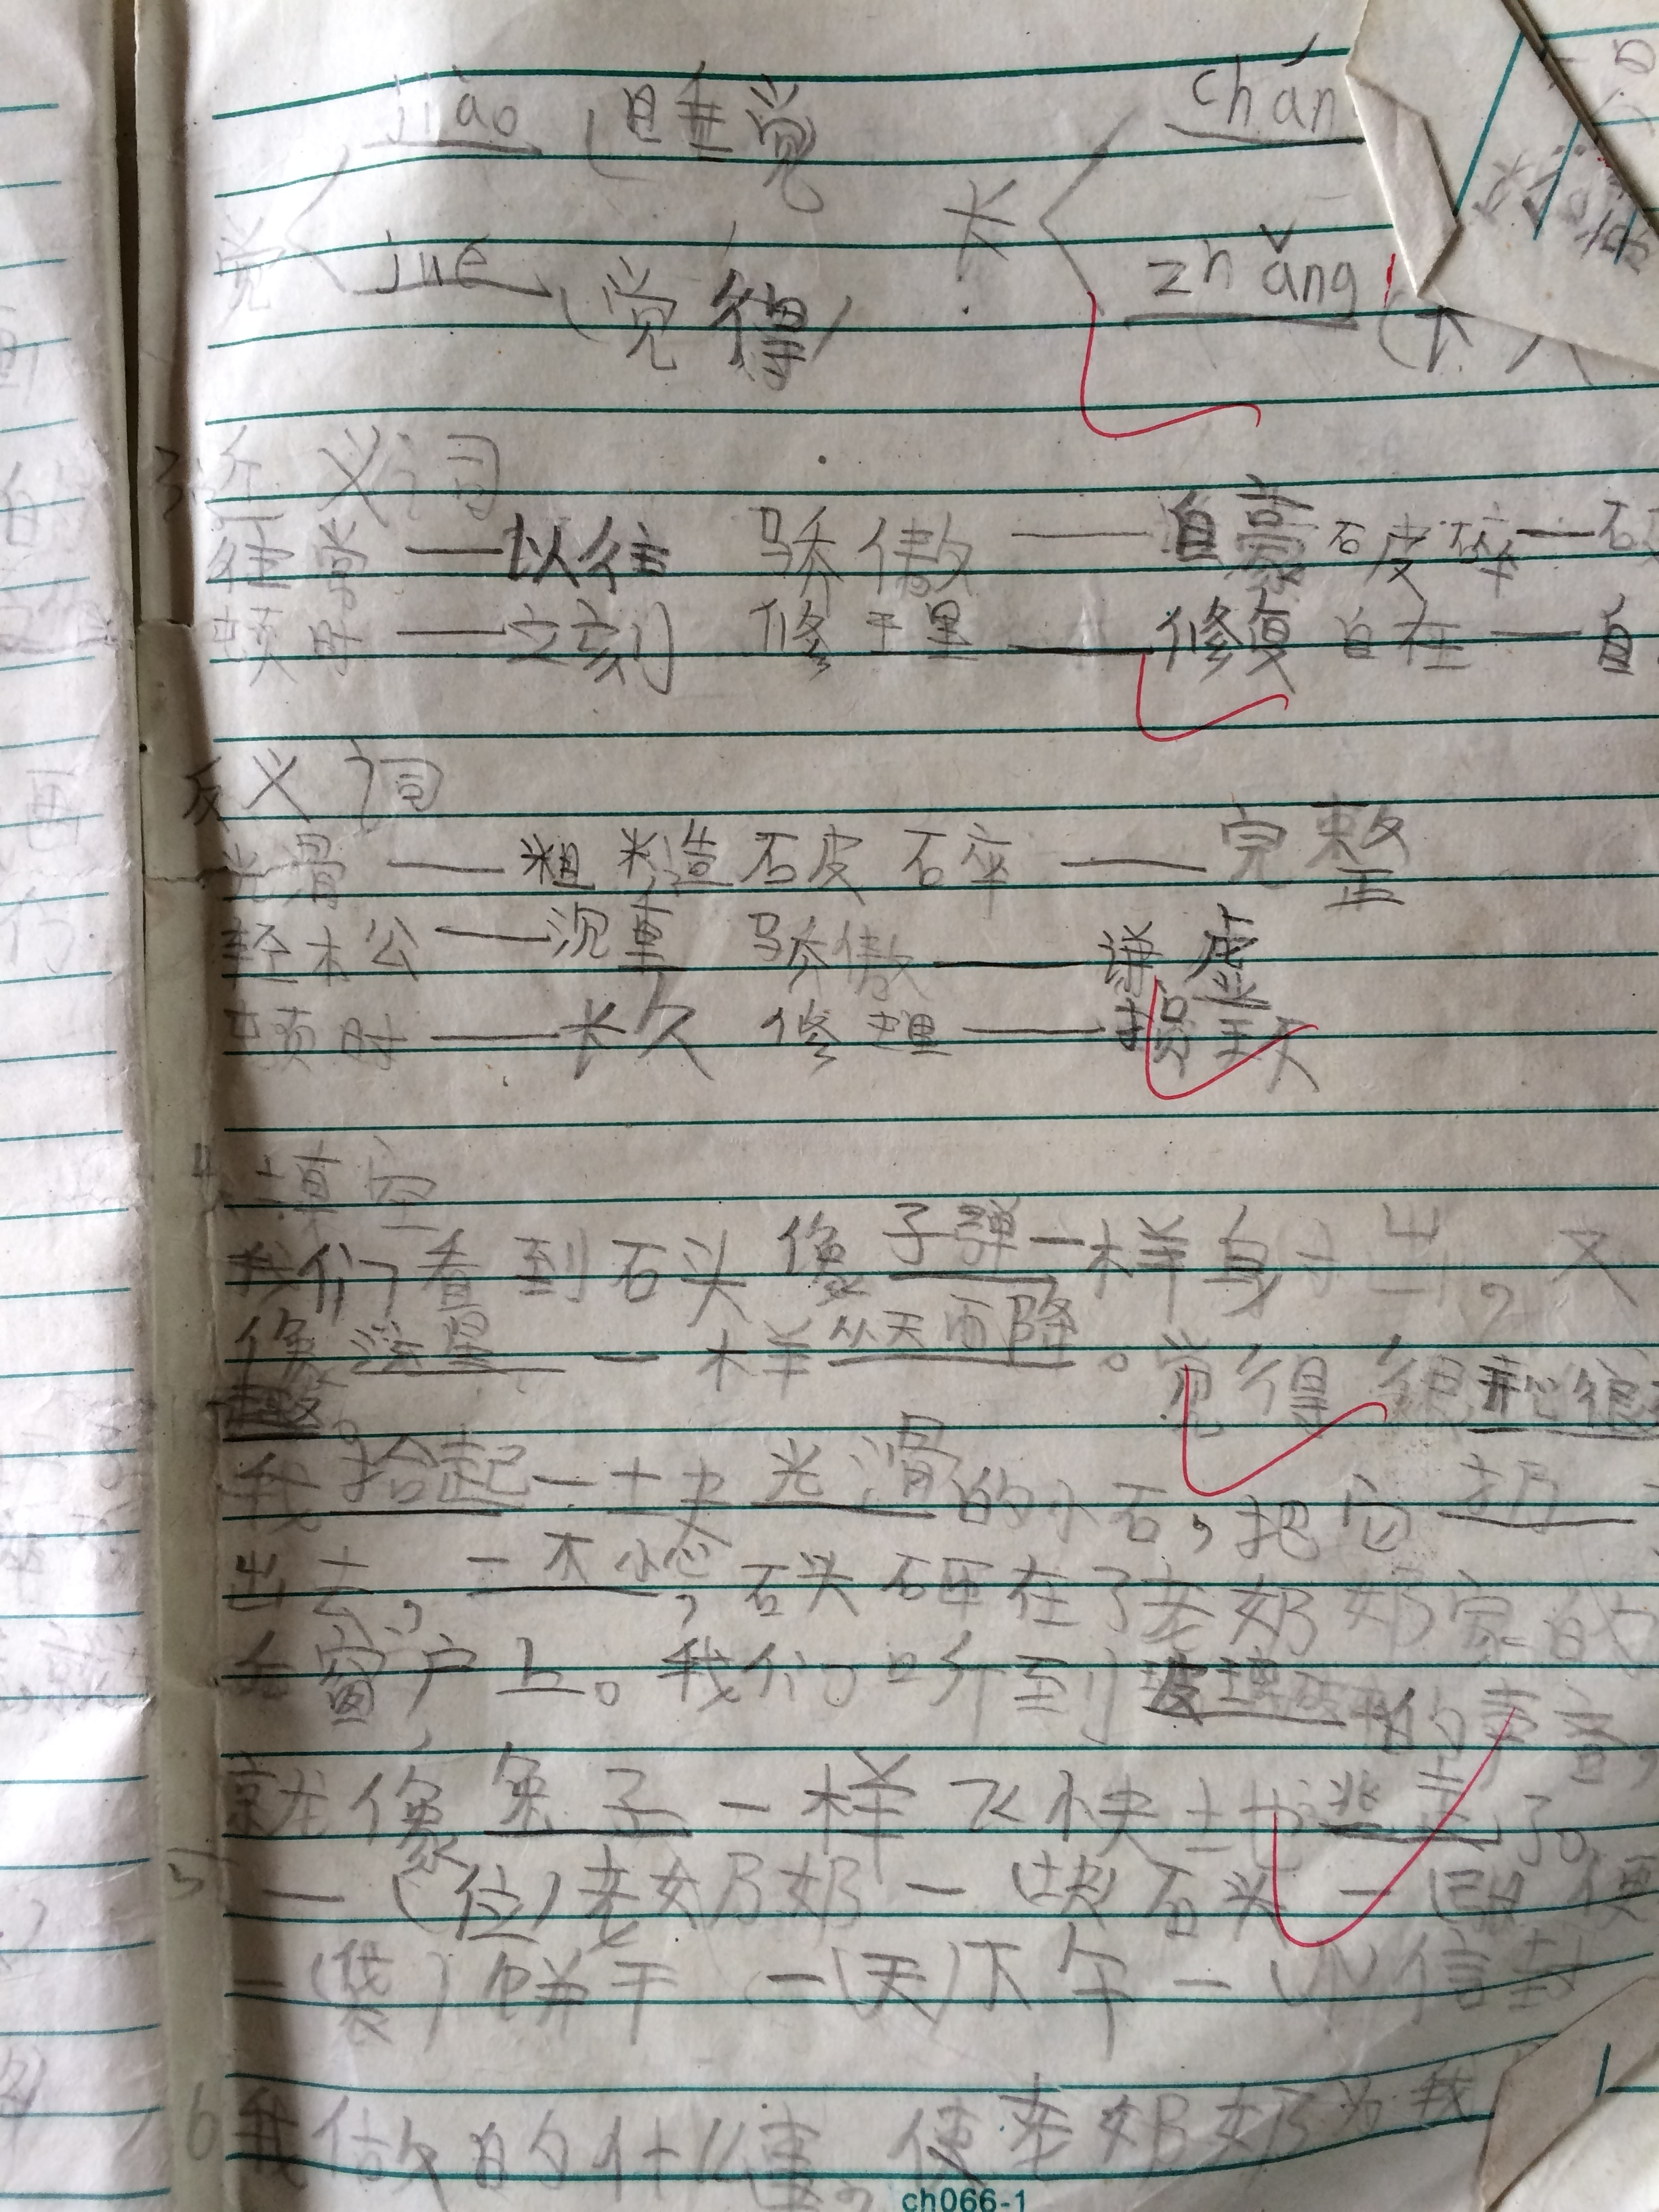 jiào (睡觉 chán
觉 长
jué (觉得) zhǎng (
3近义词
往常——以往 骄傲——自豪 破碎——
顿时——立刻 修理——修复 自在——自
反义词
光滑——粗糙 破碎——完整
轻松——沉重 骄傲——谦虚
顿时——长久 修理——损坏
4填空
我们看到石头像子弹一样射出,又
像流星一样从天而降。觉得很开心很
趣。
我拾起一块光滑的小石,把它扔
出去,一不小心,石头砸在了老奶奶家的
窗户上。我们听到玻璃破碎的声音,
就像兔子一样飞快地逃走了。
5一(位)老奶奶 一(块)石头 一(张)便
一(袋)饼干 一(天)下午 一(个)信封
6我做的什么事,使老奶奶为我
ch066-1